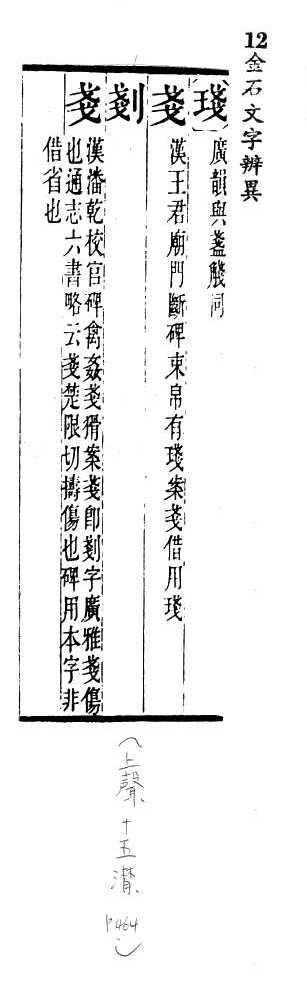 12 金石文字辨異
〔琖〕廣韻與盞醆同
戔 漢王君廟門斷碑束帛有琖案戔借用琖
剗
戔 漢潘乾校官碑禽姦戔猾案戔卽剗字廣雅戔傷
也通志六書略云戔楚限切擣傷也碑用本字非
借省也
(上聲、十五潸 P464)